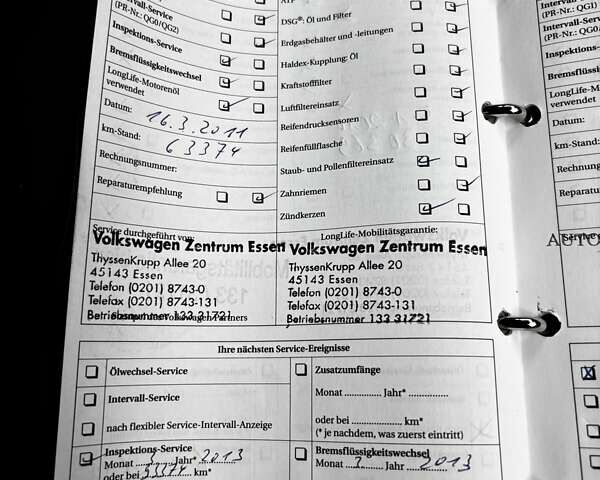 Intervall-Service
(PR-Nr.: QG0/QG2)
Inspektions-Service
Bremsflüssigkeitswechsel
LongLife-Motorenöl
verwendet
Datum: 16.3.2011
km-Stand: 63374
Rechnungsnummer:
Reparaturempfehlung
Service durchgeführt von:
Volkswagen Zentrum Essen
ThyssenKrupp Allee 20
45143 Essen
Telefon (0201) 8743-0
Telefax (0201) 8743-131
Betriebsnummer 133 31721
ATF
DSG®: Öl und Filter
Erdgasbehälter und -leitungen
Haldex-Kupplung: Öl
Kraftstofffilter
Luftfiltereinsatz
Reifendrucksensoren
Reifenfüllflasche
Staub- und Pollenfiltereinsatz
Zahnriemen
Zündkerzen
LongLife-Mobilitätsgarantie:
Volkswagen Zentrum Essen
ThyssenKrupp Allee 20
45143 Essen
Telefon (0201) 8743-0
Telefax (0201) 8743-131
Betriebsnummer 133 31721
Ihre nächsten Service-Ereignisse
Ölwechsel-Service
Intervall-Service
nach flexibler Service-Intervall-Anzeige
Inspektions-Service
Monat 3 Jahr* 2013
oder bei 93374 km*
Zusatzumfänge
Monat ............ Jahr* ...............
oder bei .................. km*
(* je nachdem, was zuerst eintritt)
Bremsflüssigkeitswechsel
Monat 3 Jahr 2013
Intervall-Service
(PR-Nr.: QG1)
Intervall-Service
(PR-Nr.: QG0
Inspektions-
Bremsflüssig
LongLife-Mo
verwendet
Datum:
km-Stand:
Rechnung
Reparatur
Service
AUTO